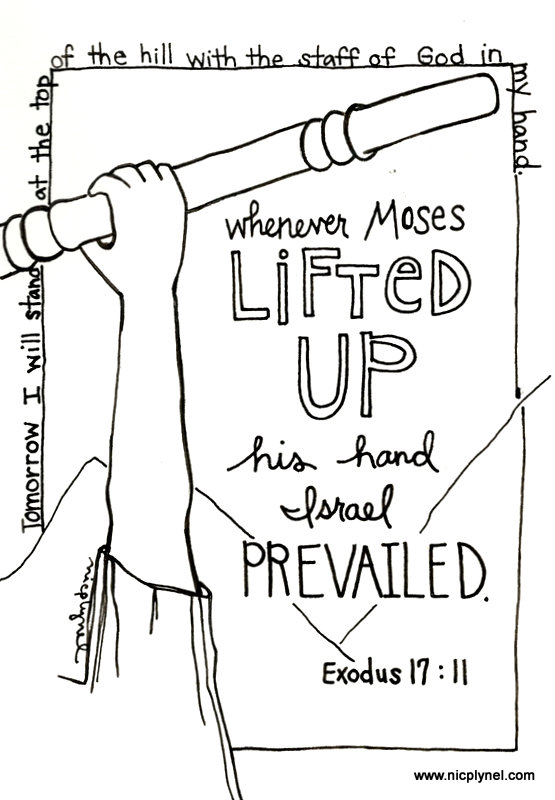 Tomorrow I will stand at the top
of the hill with the staff of God in
my hand.
whenever Moses
LiFTeD
UP
his hand
Israel
PREVAILED.
Exodus 17:11
www.nicplynel.com